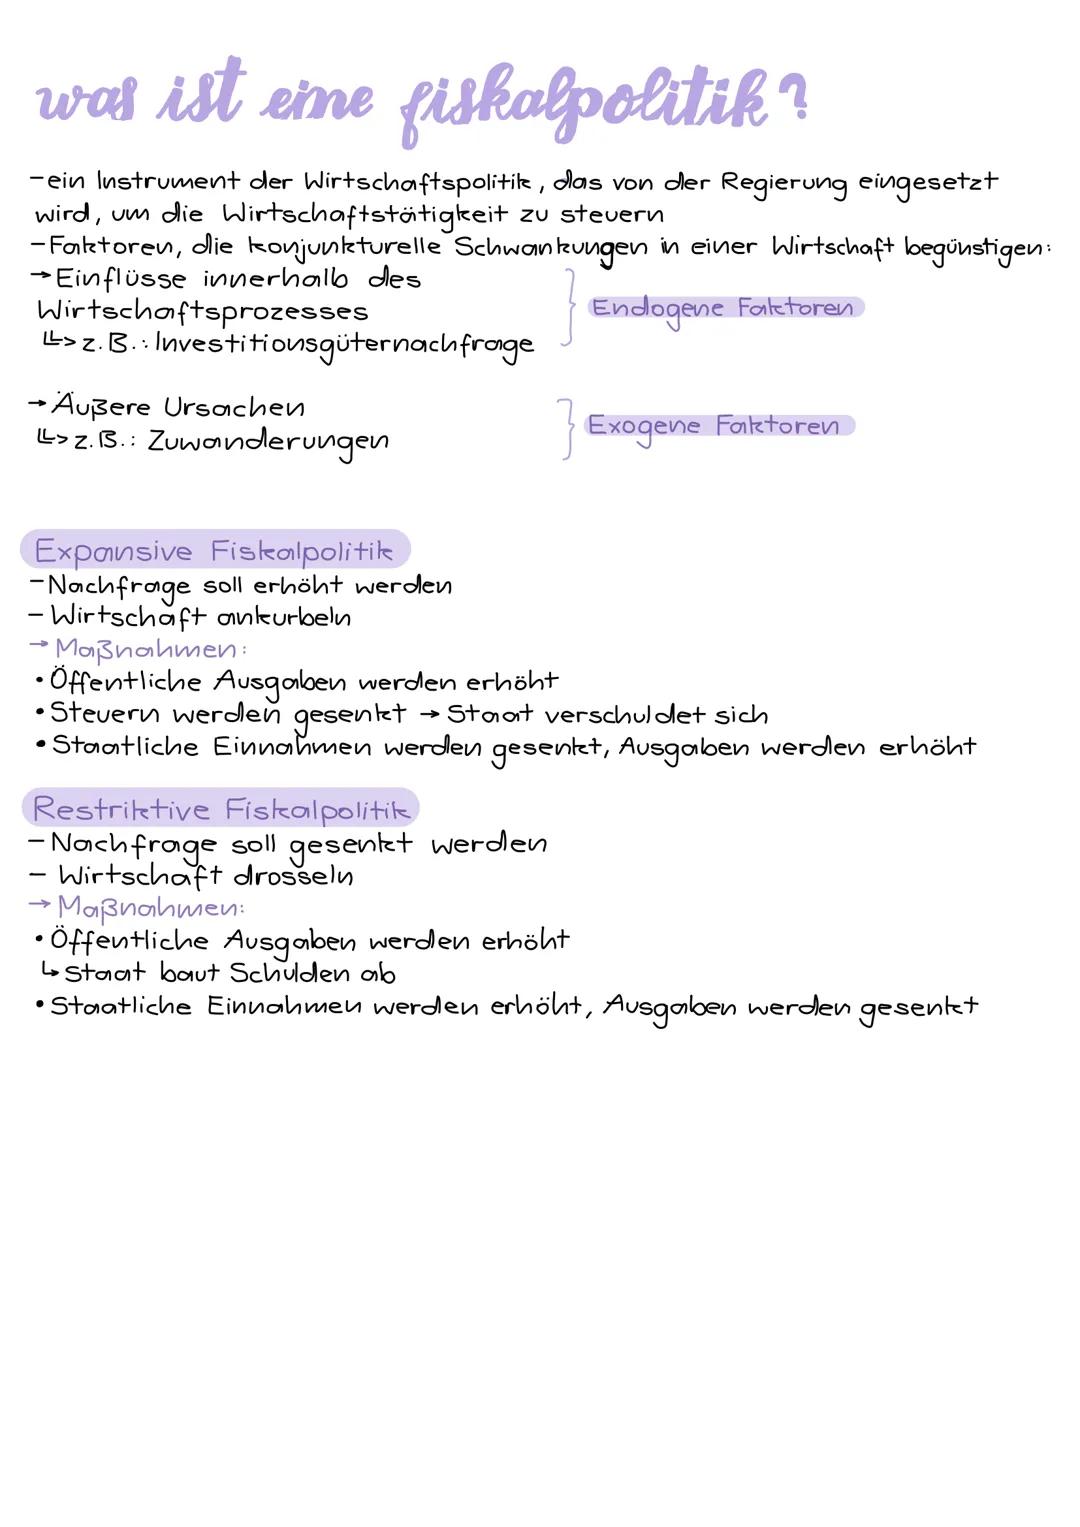 was ist eine fiskalpolitik?
-ein Instrument der Wirtschaftspolitik, das von der Regierung eingesetzt
wird, um die Wirtschaftstätigkeit zu steuern
-Faktoren, die konjunkturelle Schwankungen in einer Wirtschaft begünstigen:
→Einflüsse innerhalb des
Wirtschaftsprozesses
Endogene Faktoren
↳>z.B.: Investitionsgüternachfrage
→Äußere Ursachen
Exogene Faktoren
↳>z.B.: Zuwanderungen
Expansive Fiskalpolitik
-Nachfrage soll erhöht werden
- Wirtschaft ankurbeln
→ Maßnahmen:
•Öffentliche Ausgaben werden erhöht
•Steuern werden gesenkt → Staat verschuldet sich
•Staatliche Einnahmen werden gesenkt, Ausgaben werden erhöht
Restriktive Fiskalpolitik
-Nachfrage soll gesenkt werden
- Wirtschaft drosseln
→ Maßnahmen:
•Öffentliche Ausgaben werden erhöht
↳Staat baut Schulden ab
•Staatliche Einnahmen werden erhöht, Ausgaben werden gesenkt